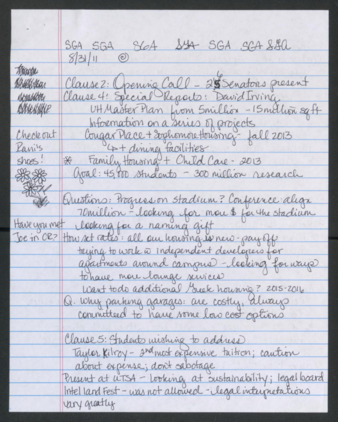 SGA SGA SGA SGA SGA SGA SGA
8/31/11
Clause 2: Opening Call - Senators present
Clause 4: Special Reports: David Irving
UH Master Plan from 5million - 15million sqft
Information on a series of projects
Check out Cougar Place + Sophomore Housing - fall 2013
Rani's + dining facilities
shoes! * Family Housing + Child Care - 2013
Goal: 45,000 students - 300 million research
Question: Progress on stadium? Conference align
70million - looking for more $ for the stadium
Have you met looking for a naming gift
Joe in OR? How set rates: all our housing is new - pay off
trying to work w independent developers for
apartments around campus - looking for ways
to have more lounge services
Want to do additional Greek housing? 2015-2016
Q. Why parking garages: are costly, always
committed to have some low cost options
Clause 5: Students wishing to address
Taylor Kilroy - 3rd most expensive tuition; caution
about expense; don't sabotage
Present at UTSA - looking at sustainability; legal board
Intel land Fest - was not allowed - legal interpretations
vary greatly